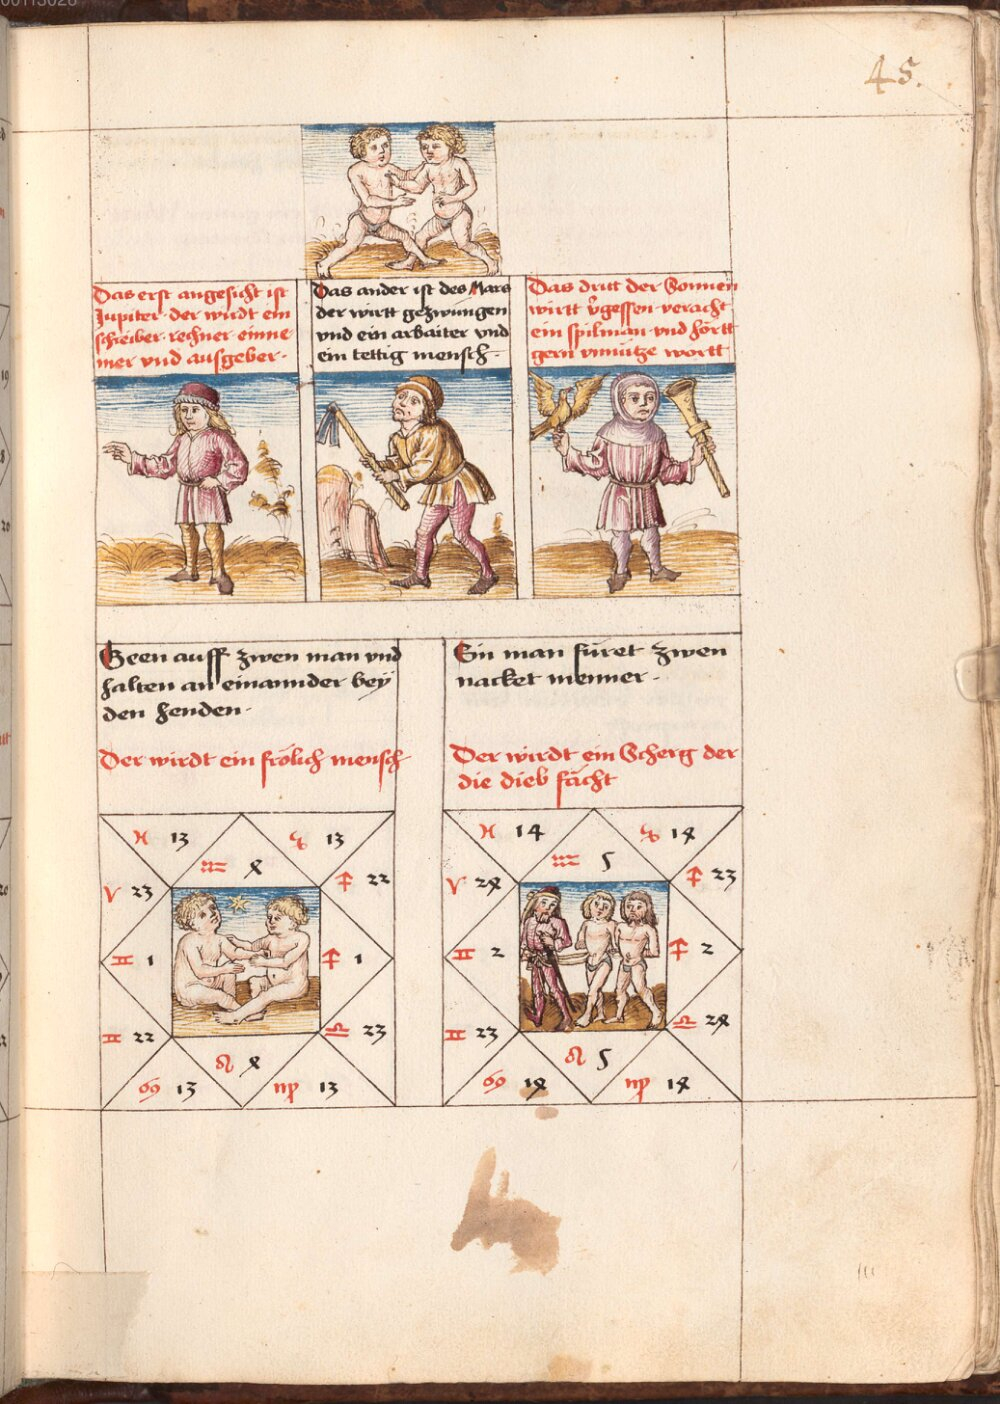 00113028
45.
Das erst angesicht ist
Jupiter · der wirdt ein
schreiber · rechner · einne
mer vnd ausgeber ·
Das ander ist des Mars
der wirtt gezwungen
vnd ein arbaiter vnd
ein tettig mensch ·
Das dritt der Sonnen
wirtt v̈gessen · veracht
ein spilman · vnd hörtt
gern vnnütze wortt
Geen auff zwen man vnd
halten an einannder bey
den henden ·
Der wirdt ein frölich mensch
♓ 13
♑ 13
♒ 8
♈ 23
♐ 22
♊ 1
♐ 1
♊ 22
♎ 23
♌ 8
♋ 13
♍ 13
Ein man füret zwen
nacket menner ·
Der wirdt ein Scherg der
die dieb fächt
♓ 14
♑ 14
♒ 5
♈ 24
♐ 23
♊ 2
♐ 2
♊ 23
♎ 24
♌ 5
♋ 14
♍ 14